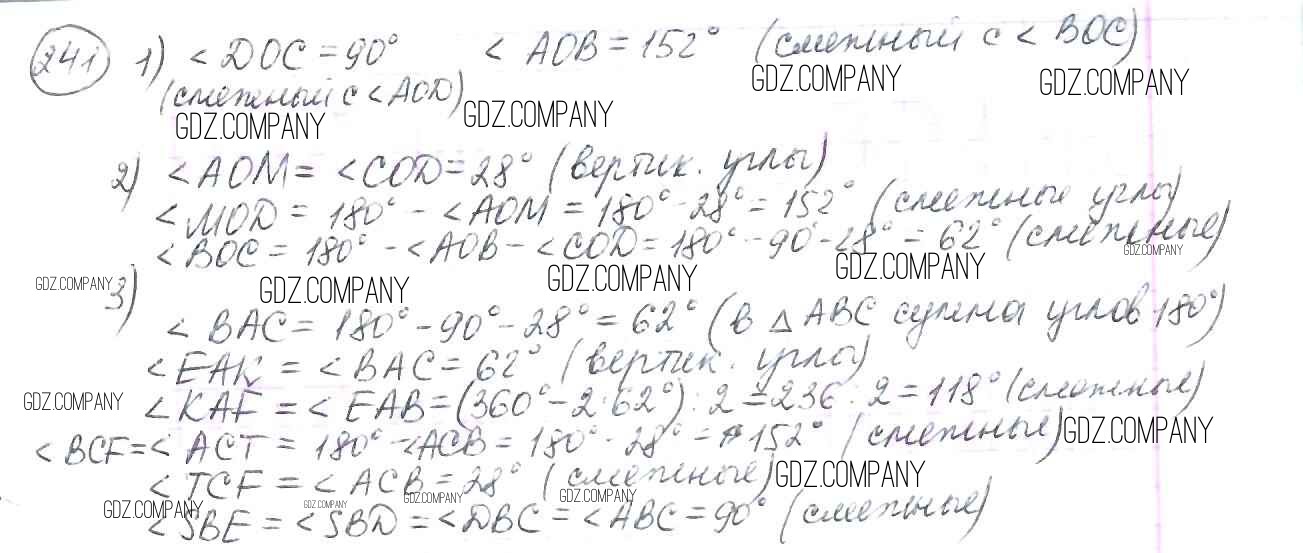 241 1) < DOC = 90° < AOB = 152° (смежный с < BOC)
(смежный с < AOD)
GDZ.COMPANY GDZ.COMPANY GDZ.COMPANY GDZ.COMPANY
2) < AOM = < COD = 28° (вертик. углы)
< MOD = 180° - < AOM = 180° - 28° = 152° (смежные углы)
< BOC = 180° - < AOB - < COD = 180° - 90° - 28° = 62° (смежные)
GDZ.COMPANY GDZ.COMPANY GDZ.COMPANY GDZ.COMPANY GDZ.COMPANY
3)
< BAC = 180° - 90° - 28° = 62° (в △ ABC сумма углов 180°)
< EAK = < BAC = 62° (вертик. углы)
GDZ.COMPANY < KAF = < EAB = (360° - 2·62°) : 2 = 236 : 2 = 118° (смежные)
< BCF = < ACT = 180° - < ACB = 180° - 28° = 152° (смежные) GDZ.COMPANY
< TCF = < ACB = 28° (смежные) GDZ.COMPANY
GDZ.COMPANY GDZ.COMPANY GDZ.COMPANY GDZ.COMPANY
< SBE = < SBD = < DBC = < ABC = 90° (смежные)